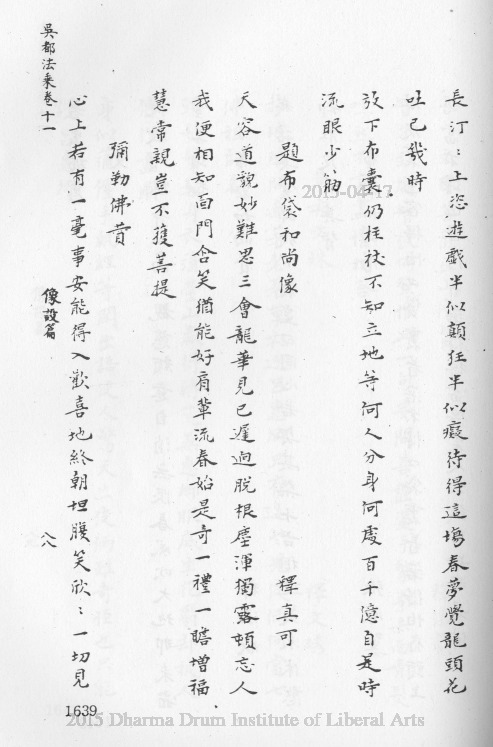 吳都法乘卷十一
長汀：上恣遊戲半似顛狂半似癡待得這場春夢覺龍頭花
吐已幾時
放下布囊仍拄杖不知立地等何人分身何處百千億自是時
流眼少筋
題布袋和尚像
釋真可
天容道貌妙難思三會龍華見已遲迥脫根塵渾獨露頓忘人
我便相知面門含笑猶能好肩輩流春始是奇一禮一瞻增福
慧常親豈不獲菩提
彌勒佛贊
心上若有一毫事安能得入歡喜地終朝坦腹笑欣：一切見
像設篇
八八
1639
2015 Dharma Drum Institute of Liberal Arts